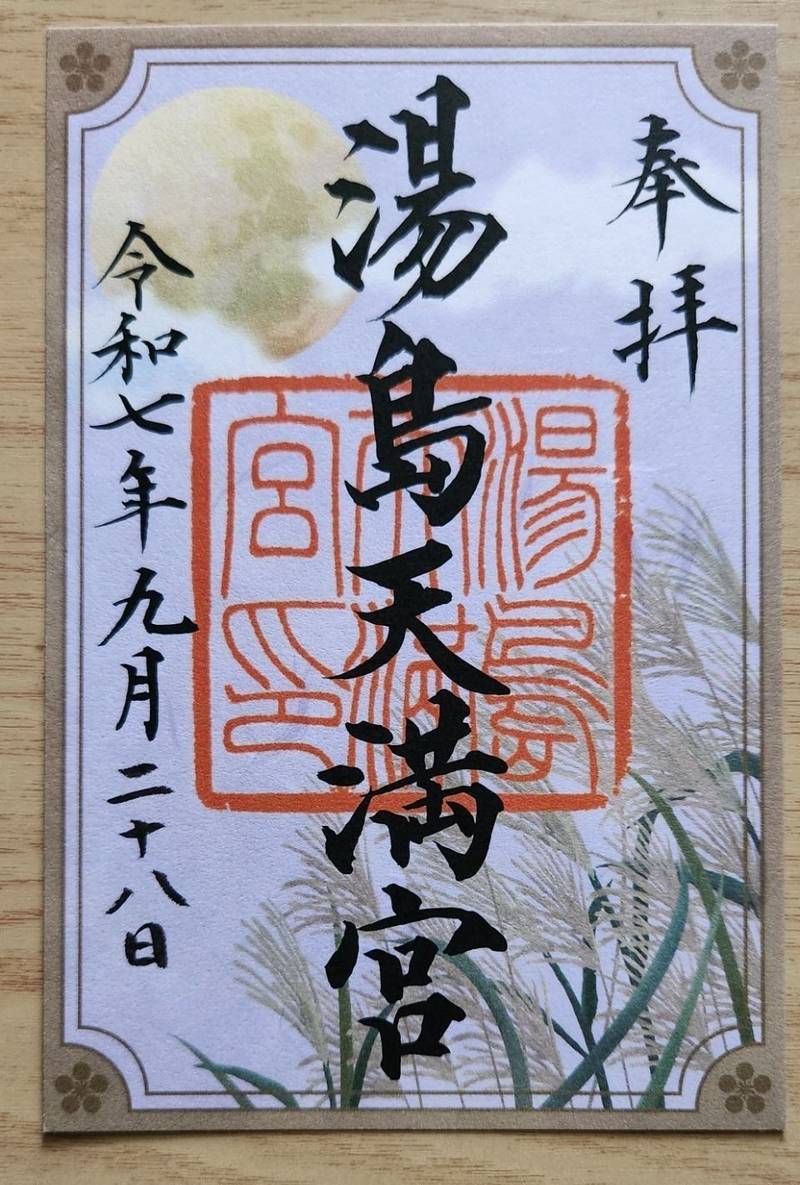 奉拝
湯島天満宮
湯島天満宮印
令和七年九月二十八日